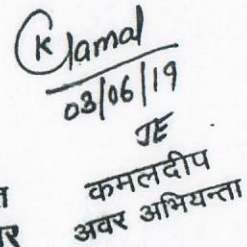 Kamal
03/06/19
JE
कमलदीप
अवर अभियन्ता